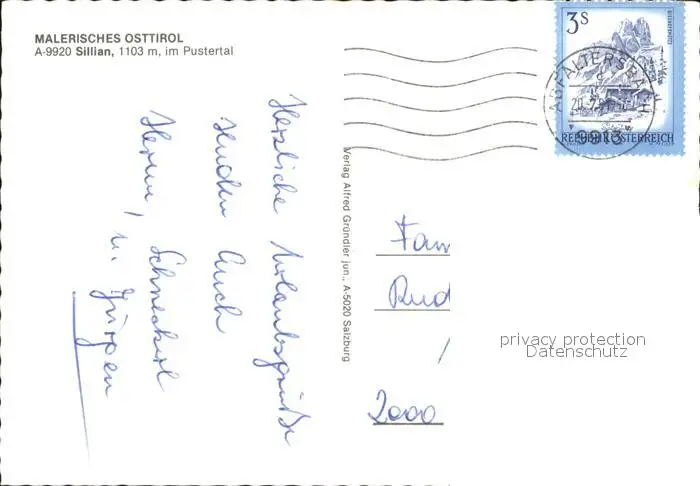 MALERISCHES OSTTIROL
A-9920 Sillian, 1103 m, im Pustertal
Herzliche Urlaubsgrüße
senden Euch
Herm, Schneckerl
u. Jürgen
Verlag Alfred Gründler jun., A-5020 Salzburg
3S
ABFALTERSBACH
9913
REPUBLIK ÖSTERREICH
Fam
Rud
2000
privacy protection
Datenschutz